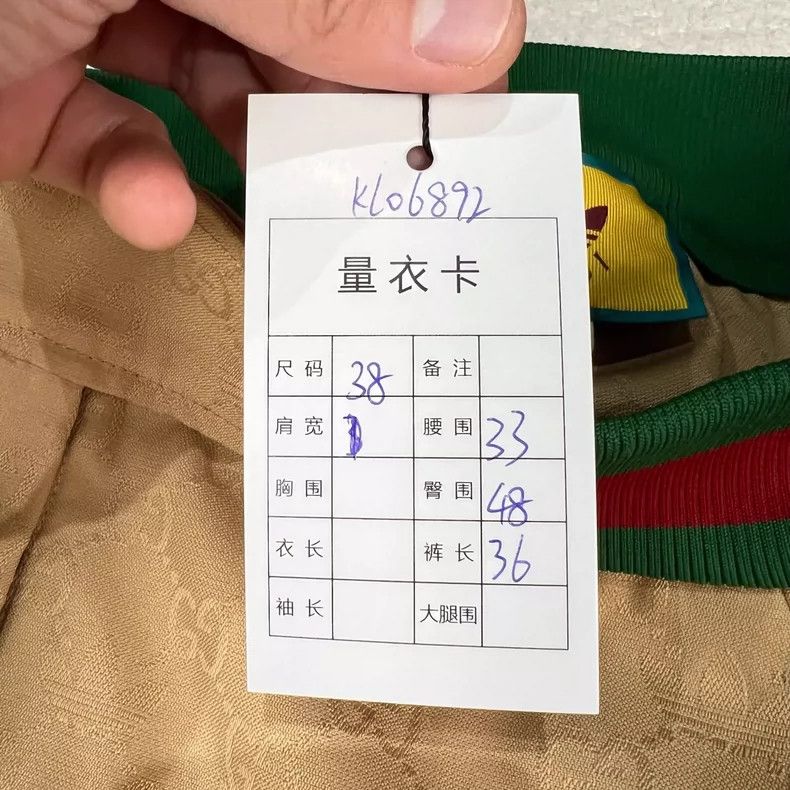 KL06892
量衣卡
尺码 38 备注
肩宽 腰围 33
胸围 臀围 48
衣长 裤长 36
袖长 大腿围